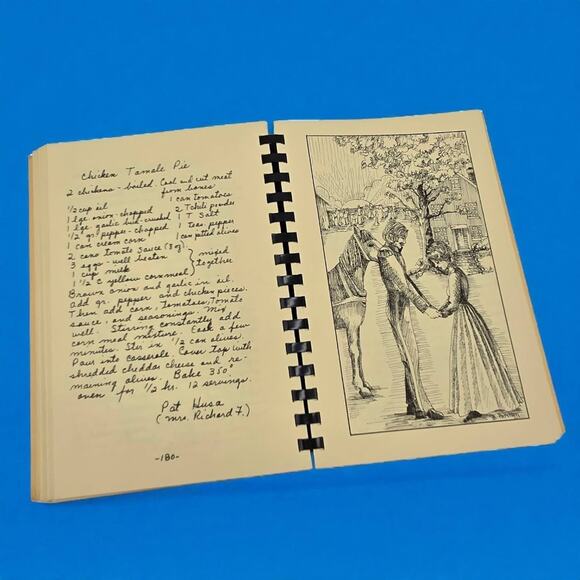 Chicken Tamale Pie
2 chickens - boiled. Cool and cut meat
from bones
1/2 cup oil
1 can tomatoes
1 lge onion - chopped
2 T chili powder
1 lge garlic bud - crushed
1 T Salt
1/2 gr. pepper - chopped
1 teas. pepper
1 can cream corn
1 can pitted olives
2 cans tomato sauce (8 oz)
3 eggs - well beaten
1 cup milk
1 1/2 C yellow cornmeal
} mixed
together
Brown onion and garlic in oil.
Add gr. pepper and chicken pieces.
Then add corn, tomatoes, Tomato
sauce, and seasonings. Mix
well. Stirring constantly add
corn meal mixture. Cook a few
minutes. Stir in 1/2 can olives.
Pour into casserole. Cover top with
shredded cheddar cheese and re-
maining olives. Bake 350°
oven for 1/2 hr. 12 servings.
Pat Husa
(Mrs. Richard F.)
-180-